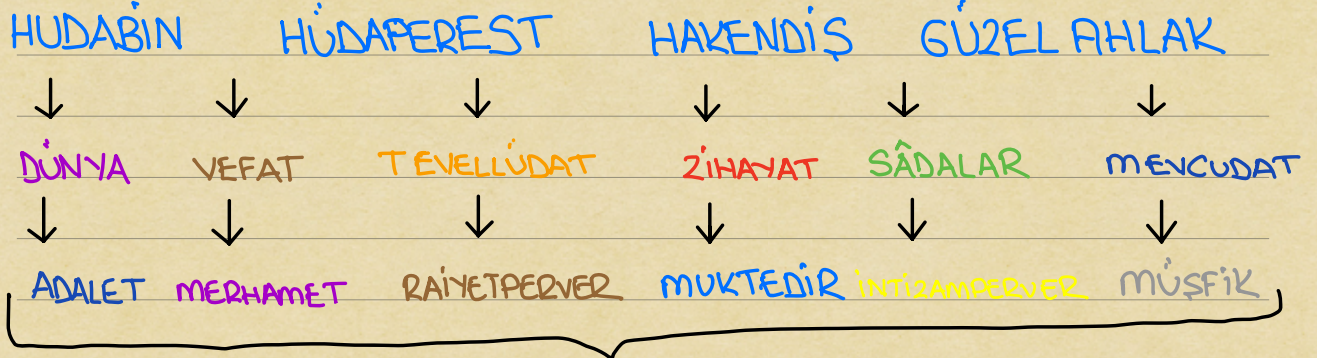 HUDABİN HÜDAPEREST HAKENDİŞ GÜZEL AHLAK
DÜNYA VEFAT TEVELLÜDAT ZİHAYAT SÂDALAR MEVCUDAT
ADALET MERHAMET RAİYETPERVER MUKTEDİR İNTİZAMPERVER MÜŞFİK